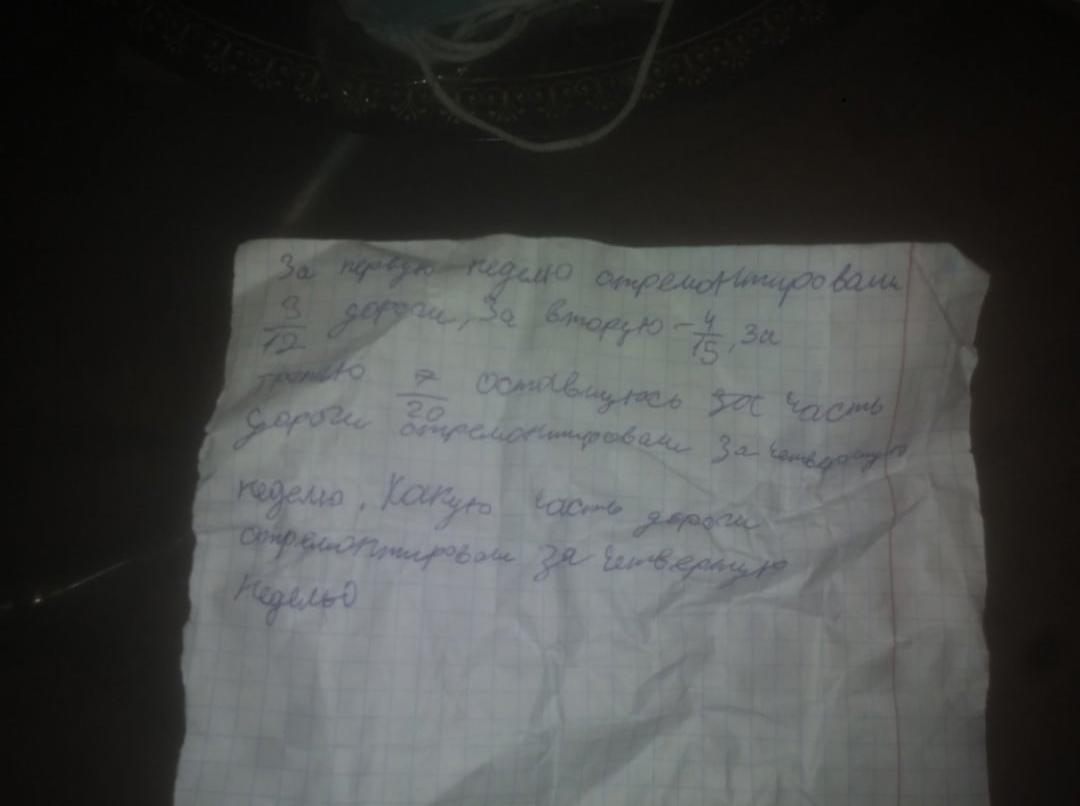 За первую неделю отремонтировали
3/12 дороги, За вторую - 4/15, за
третью 7/20 оставшуюсь за часть
дороги отремонтировали За четвертую
неделю. Какую часть дороги
отремонтировали за четвертую
неделю